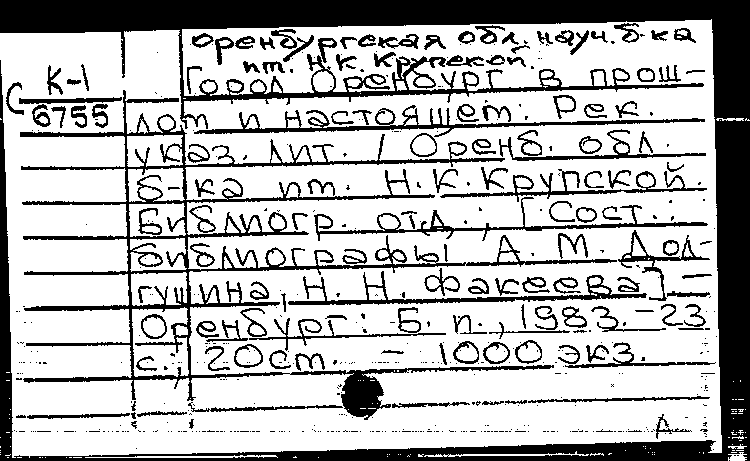 Оренбургская обл. науч. б-ка
им. Н.К. Крупской.
К-1
6755
Город Оренбург в прош-
лом и настоящем: Рек.
указ. лит. / Оренб. обл.
б-ка им. Н.К. Крупской.
Библиогр. отд.; [Сост.:
библиографы А. М. Дол-
гушина, Н. Н. Факеева]. -
Оренбург: Б. и., 1983. - 23
с.; 20 см. - 1000 экз.
А